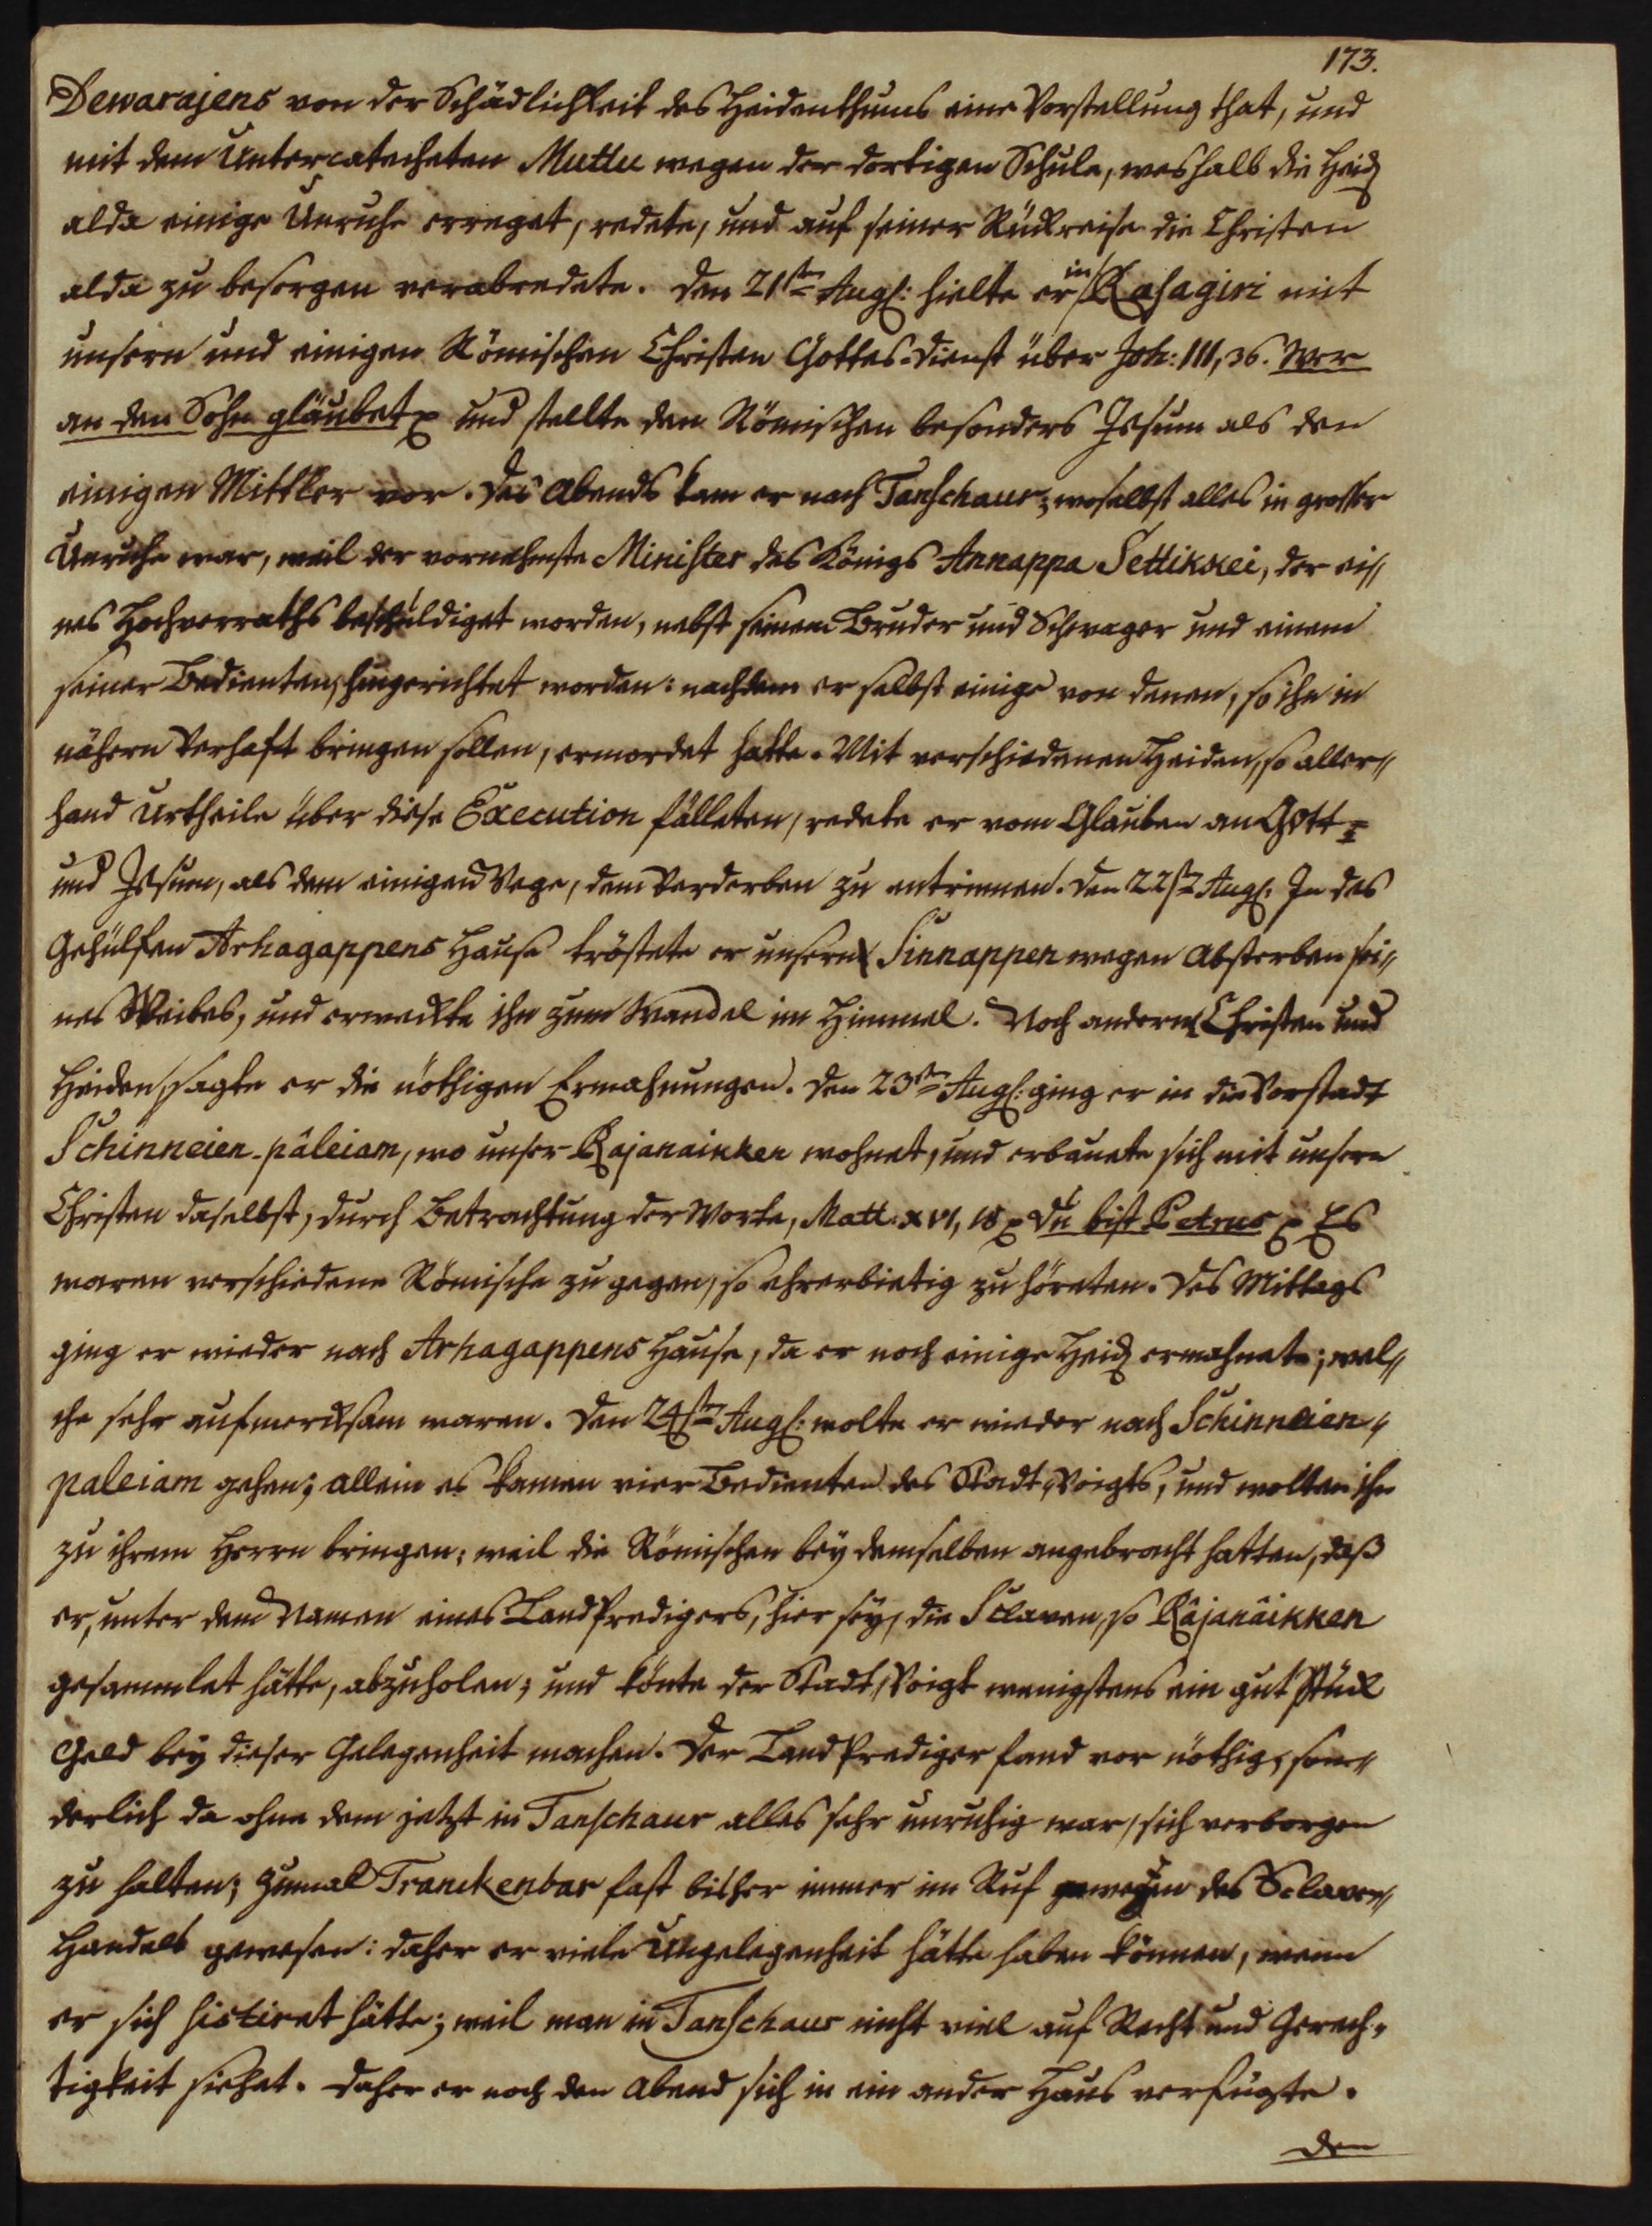 173.
Dewarajens von der Schädlichkeit des Heidenthums eine Vorstellung that, und
mit dem Untercatecheten Muttu wegen der dortigen Schule, weshalb die Heid
alda einige Unruhe erreget, redete, und auf seiner Rückreise die Christen
alda zu besorgen verabredete. Den 21ten Aug: hielte er in Rasagiri mit
unsern und einigen Römischen Christen Gottes-Dienst über Joh: III, 36. Wer
an den Sohn gläubet und stellte den Römischen besonders Jesum als den
einigen Mittler vor. Des Abends kam er nach Tanschaur, woselbst alles in grosser
Unruhe war, weil der vornehmste Minister des Königs Annappa Settikkei, der ei„
nes Hochverraths beschuldiget worden, nebst seinem Bruder und Schwager und einem
seiner Bedienten, hingerichtet worden: nachdem er selbst einige von denen, so ihn in
nähern Verhaft bringen sollen, ermordet hatte. Mit verschiedenen Heiden, so aller„
hand Urtheile über diese Execution fälleten, redete er vom Glauben an Gott
und Jesum, als dem einigen Wege, dem Verderben zu entrinnen. Den 22st Aug: In des
Gehülfen Arhagappens Hause tröstete er unsern Sinnappen wegen Absterben sei„
nes Weibes, und erweckte ihn zum Wandel im Himmel. Noch andern Christen und
Heiden, sagte er die nöthigen Ermahnungen. Den 23ten Aug: ging er in die Vorstadt
Schinneien-pâleiam, wo unser Rajanaikken wohnet, und erbauete sich mit unsern
Christen daselbst, durch Betrachtung der Worte, Matt: XVI, 18 Du bist Petrus Es
waren verschiedene Römische zu gegen, so ehrerbietig zu höreten. Des Mittags
ging er wieder nach Arhagappens Hause, da er noch einige Heid ermahnete; wel„
che sehr aufmercksam waren. Den 24sten Aug: wolte er wieder nach Schinneien„
paleiam gehen; allein es kamen vier Bedienten des Stadt-Voigts, und wolten ihn
zu ihrem Herrn bringen; weil die Römischen bey demselben angebracht hatten, daß
er, unter dem Namen eines Land Predigers, hier sey, die Sclaven, so Râjanâikken
gesammlet hätte, abzuholen; und könte der Stadt-Voigt wenigstens ein gut Stück
Geld bey dieser Gelegenheit machen. Der Land Prediger fand vor nöthig, son„
derlich da ohne dem jetzt in Tanschaur alles sehr unruhig war, sich verborgen
zu halten; zumal Tranckenbar fast bisher immer im Ruf gewesen des Sclaven„
Handels gewesen: daher er viele Ungelegenheit hätte haben können, wenn
er sich sistiret hätte; weil man in Tanschaur nicht viel auf Recht und Gerech„
tigkeit siehet. Daher er noch den Abend sich in ein ander Haus verfügte.
Den